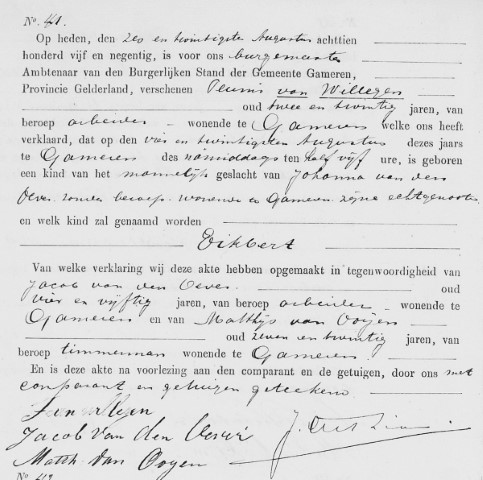 No. 41.
Op heden, den zes en twintigste Augustus achttien
honderd vijf en negentig, is voor ons burgemeester
Ambtenaar van den Burgerlijken Stand der Gemeente Gameren,
Provincie Gelderland, verschenen Teunis van Willegen
oud twee en twintig jaren, van
beroep arbeider wonende te Gameren welke ons heeft
verklaard, dat op den vier en twintigsten Augustus dezes jaars
te Gameren des namiddags ten half vijf ure, is geboren
een kind van het mannelijk geslacht van Johanna van den
Oever zonder beroep wonende te Gameren zijne echtgenoote
en welk kind zal genaamd worden
Eikbert
Van welke verklaring wij deze akte hebben opgemaakt in tegenwoordigheid van
Jacob van den Oever oud
vier en vijftig jaren, van beroep arbeider wonende te
Gameren en van Matthijs van Ooijen
oud zeven en twintig jaren, van
beroep timmerman wonende te Gameren.
En is deze akte na voorlezing aan den comparant en de getuigen, door ons met
comparant en getuigen geteekend
Jacob van den Oever
Matth van Ooyen
No 42